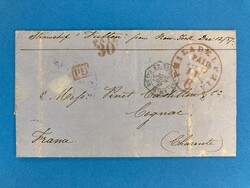 Steamship "Fulton" from New York Dec 12/57
30
PHILADELPHIA
PAID
PD
Messrs Pinet Castillon & Co
Cognac
France
Charente